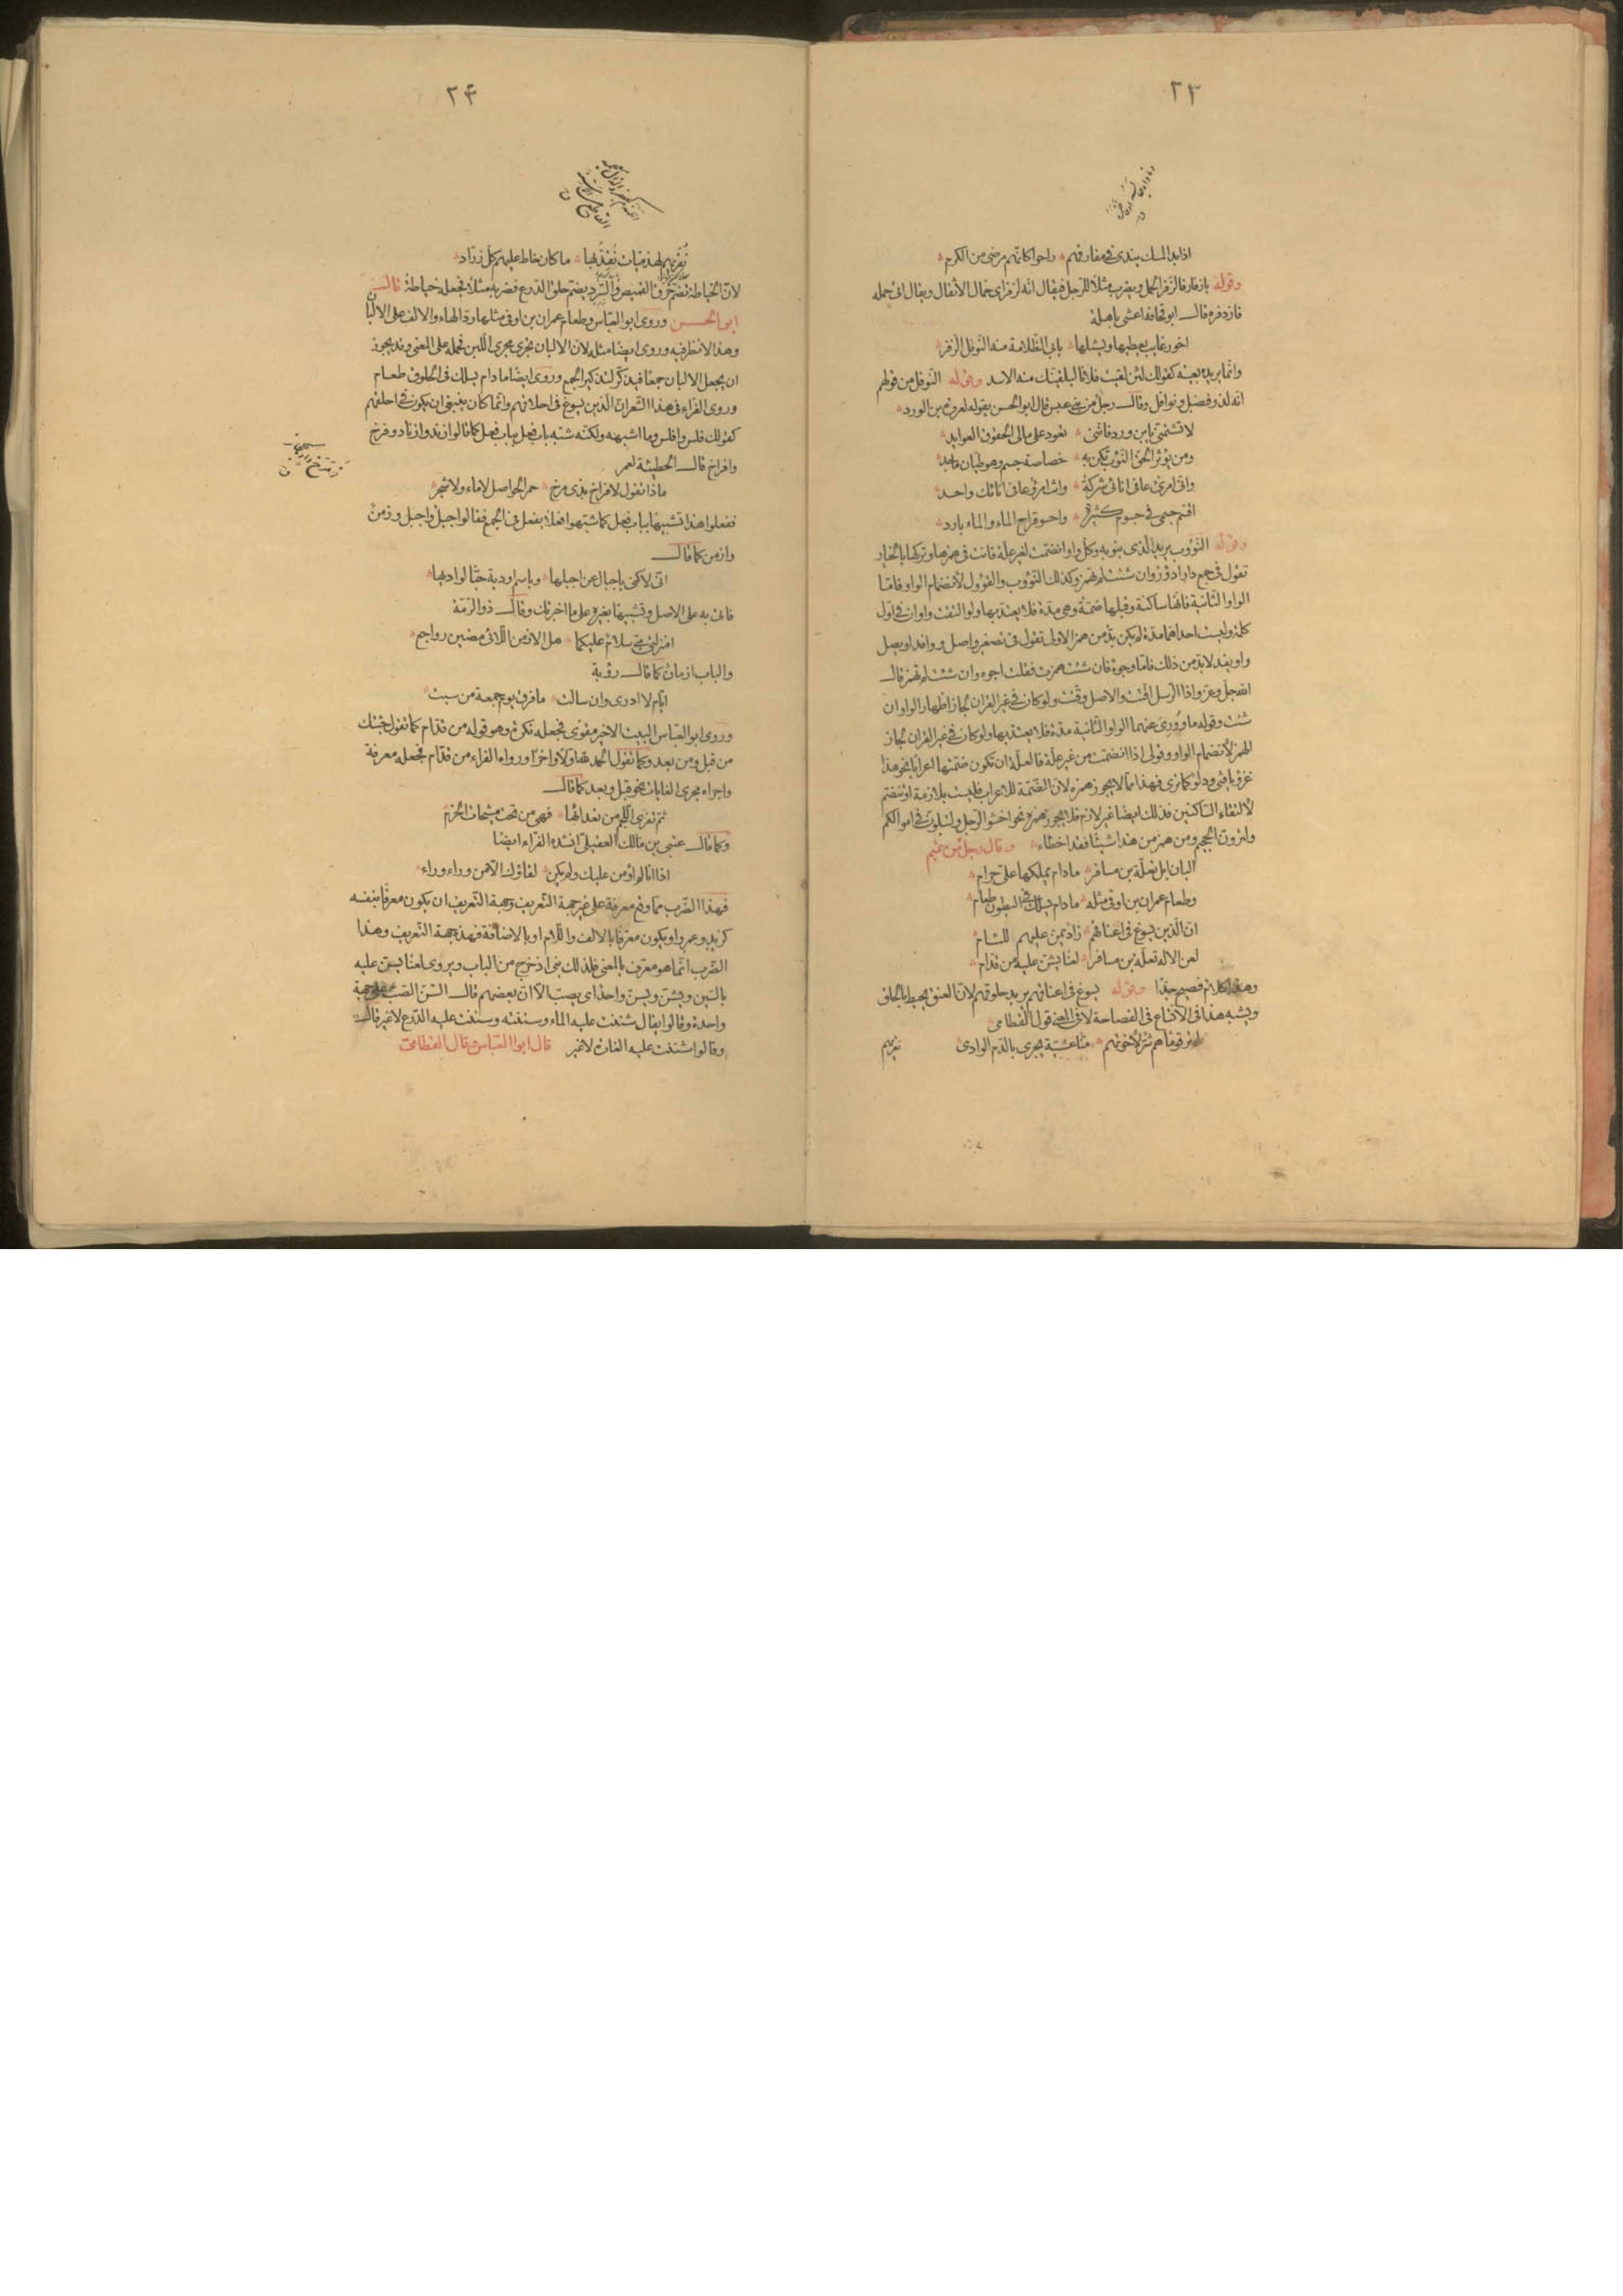 ٢٣
اذا بدا المسك يندى فى مفارقهم راحوا كانهم مرضى من الكرم
وقوله بازفار فالزفر الحمل ويضرب مثلا للرجل فيقال انه لزفر اى حمال الاثقال ويقال اتى حمله
فازدفره قال ابو قحافة اعشى باهلة
اخو رغايب يعطيها ويسئلها يابى الظلامة منه النوفل الزفر
وانما يريد بعينه كقولك لئن لقيت فلانا ليلقينك منه الاسد وقوله النوفل من قولهم
انه لذو فضل ونوافل وقال رجل من بنى عبس قال ابو الحسن يقوله لعروة بن الورد
لا تشتمنى يابن ورد فاننى تعود على مالى الحقوق العوايد
ومن يؤثر الحق النؤوب تكن به خصاصة جسم وهو طيان ماجد
وانى امرئ عافى انائى شركة وانت امرؤ عافى انائك واحد
اقسم جسمى فى جسوم كثيرة واحسو قراح الماء والماء بارد
وقوله النؤوب يريد الذى ينوبه وكل واو انضمت لغير علة فانت فى همزها وتركها بالخيار
تقول فى جمع دار ادؤر وان شئت لم تهمز وكذلك النؤوب والقؤول لانضمام الواو فاما
الواو الثانية فانها ساكنة وقبلها ضمة وهى مدة فلا يعتد بها ولو التقت واوان فى اول
كلمة وليست احداهما مدة لم يكن بد من همز الاولى تقول فى تصغير واصل وواقد اويصل
واويقد لا بد من ذلك فاما وجوه فان شئت همزت فقلت اجوه وان شئت لم تهمز قال
الله جل وعز واذا الرسل اقتت والاصل وقتت ولو كان فى غير القران لجاز اظهار الواو ان
شئت وقوله ما وورى عنهما الواو الثانية مدة فلا يعتد بها ولو كان فى غير القران لجاز
الهمز لانضمام الواو وقولى اذا انضمت من غير علة فالعلة ان تكون ضمتها اعرابا نحو هذا
غزو يا فتى ودلو كما ترى فهذا مما لا يجوز همزه لان الضمة للاعراب فليست بلازمة او تنضم
لالتقاء الساكنين فذلك ايضا غير لازم فلا يجوز همزه نحو اخشوا الرجل ولتبلون فى اموالكم
ولترون الجحيم ومن همز من هذا شيئا فقد اخطاء وقال رجل من تميم
البان ابل تعلة بن مسافر مادام يملكها على حرام
وطعام عمران بن اوفى مثله مادام يسلك فى البطون طعام
ان الذين يسوغ فى اعناقهم زاد يمن عليهم للئام
لعن الاله تعلة بن مسافر لعنا يشن عليه من قدام
وهذا كلام فصيح جدا وقوله يسوغ فى اعناقهم يريد حلوقهم لان العنق يحيط بالحلق
ويشبه هذا فى الاتساع فى الفصاحة لا فى المعنى قول القطامى
لم تر قوما هم شر لاخوتهم منا عشية يجرى بالدم الوادى
نقريهم
٢۴
نقريهم لهذميات نقد بها ما كان خاط عليهم كل زراد
لان الخياطة تضم خرق القميص والسرد يضم حلق الدرع فضربه مثلا فجعله خياطة قال
ابو الحسن وروى ابو العباس وطعام عمران بن اوفى مثلها رد الهاء والالف على الالبان
وهذا لا نظر فيه وروى ايضا مثله لان الالبان تجرى مجرى اللبن فحمله على المعنى وقد يجوز
ان يجعل الالبان جمعا فيذكر لتذكير الجمع وروى ايضا مادام يسلك فى الحلوق طعام
وروى الفراء فى هذا الشعر ان الذين يسوغ فى احلاقهم وانما كان ينبغى ان يكون فى احلقهم
كقولك فلس وافلس وما اشبهه ولكنه شبه باب فعل بباب فعل كما قالوا زند وازناد وفرخ
وافراخ قال الحطيئة لعمر
ماذا تقول لافراخ بذى مرخ حمر الحواصل لا ماء ولا شجر
ففعلوا هذا تشبيها بباب فعل كما شبهوا فعلا بفعل فى الجمع فقالوا جبل واجبل وزمن
وازمن كما قال
انى لاكنى باجبال عن اجبلها وباسم اودية حبا لواديها
فاتى به على الاصل وتشبيها بغيره على ما اخبرتك وقال ذو الرمة
امنزلتى مى سلام عليكما هل الازمن اللائى مضين رواجع
والباب ازمان كما قال رؤبة
ايام لا ادرى وان سالت ما فرق يوم جمعة من سبت
وروى ابو العباس البيت الاخير مقوى فجعله نكرة وهو قوله من قدام كما تقول جئتك
من قبل ومن بعد وكما تقول الحمد لله اولا واخرا ورواه الفراء من قدام فجعله معرفة
واجراه مجرى الغايات نحو قبل وبعد كما قال
ثم تفرى اللجم من تعدائها فهى من تحت مشيحات الحزم
وكما قال عتى بن مالك العقيلى انشده الفراء ايضا
اذا انا لم اومن عليك ولم يكن لقاؤك الا من وراء وراء
فهذا الضرب مما وقع معرفة على غير جهة التعريف وجهة التعريف ان يكون معرفا بنفسه
كزيد وعمرو او يكون معرفا بالالف واللام او بالاضافة فهذه جهة التعريف وهذا
الضرب انما هو معرف بالمعنى فلذلك بنى اذ خرج من الباب ويروى لعنا يسن عليه
بالسين ويشن ويسن واحد اى يصب الا ان بعضهم قال السن الصب على جهة
واحدة وقالوا يقال شننت عليه الماء وسننته وسننت عليه الدرع لا غير قال
وقالوا شننت عليه الغارة لا غير قال ابو العباس وقال القطامى